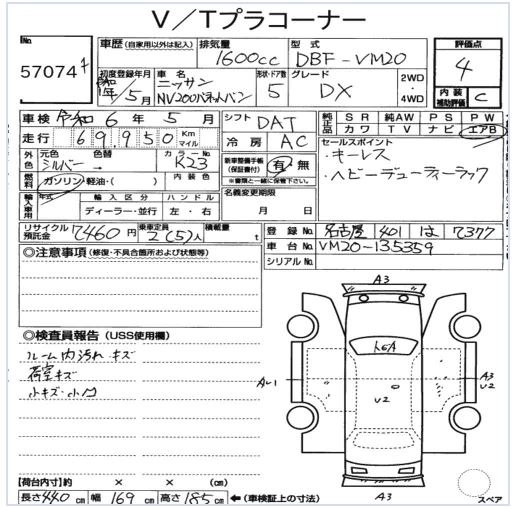 V／Tプラコーナー
No.
57074
車歴 (自家用以外は記入)
排気量
1600cc
型式
DBF-VM20
評価点
4
内装補助評価
C
初度登録年月
令和 1年 5月
車名
ニッサン
NV200バネットバン
形状・ドア数
5
グレード
DX
2WD
・
4WD
車検 令和 6年 5月
シフト DAT
純正品
SR 純AW PS PW
カワ TV ナビ エアB
走行 69,950 Km
マイル
冷房 AC
セールスポイント
・キーレス
・ヘビーデューティーラック
外色
元色
シルバー
色替
→
カラーNo.
K23
新車整備手帳
(保証書付)
有・無
(※書類と一緒に保管下さい)
燃料
ガソリン・軽油・( )
内装色
名義変更期限
月 日
輸入車用
年式
輸入区分
ハンドル
ディーラー・並行
左・右
リサイクル預託金
7460円
乗車定員
2(5)人
積載量
t
登録No.
名古屋 401 は 7377
車台No.
VM20-135359
シリアルNo.
◎注意事項 (修復・不具合箇所および状態等)
◎検査員報告 (USS使用欄)
ルーム内汚れ キズ
荷室キズ
小キズ・小凹
A3
A3
U2
U2
A3
スペア
【荷台内寸】約 × × (cm)
長さ 440 cm 幅 169 cm 高さ 185 cm ←(車検証上の寸法)